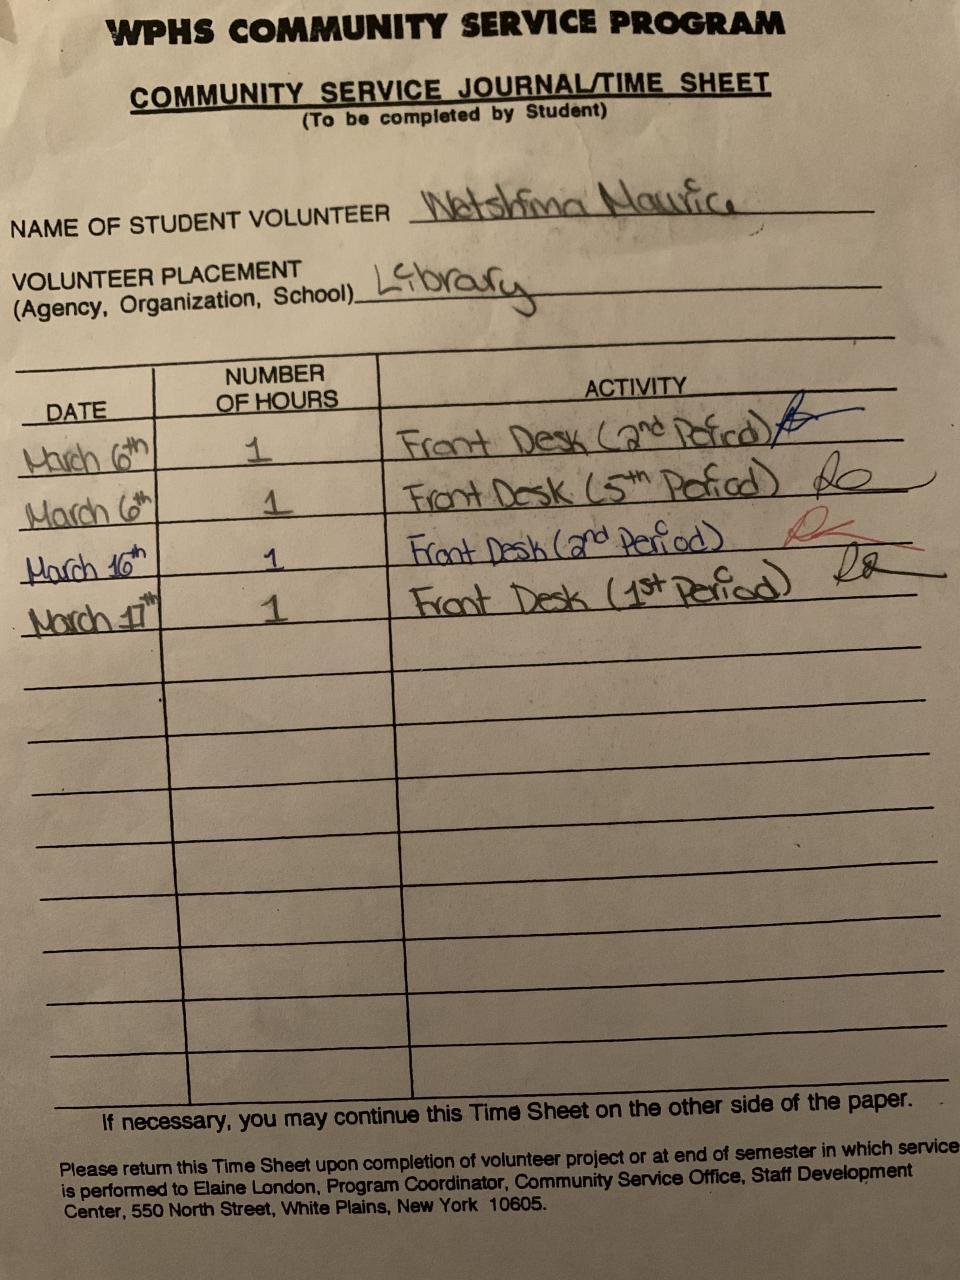 WPHS COMMUNITY SERVICE PROGRAM
COMMUNITY SERVICE JOURNAL/TIME SHEET
(To be completed by Student)
NAME OF STUDENT VOLUNTEER Maurice
VOLUNTEER PLACEMENT
(Agency, Organization, School) Library
DATE NUMBER OF HOURS ACTIVITY
March 6th 1 Front Desk (2nd Period)
March 6th 1 Front Desk (5th Period)
March 16th 1 Front Desk (2nd Period)
March 17th 1 Front Desk (1st Period)
If necessary, you may continue this Time Sheet on the other side of the paper.
Please return this Time Sheet upon completion of volunteer project or at end of semester in which service
is performed to Elaine London, Program Coordinator, Community Service Office, Staff Development
Center, 550 North Street, White Plains, New York 10605.